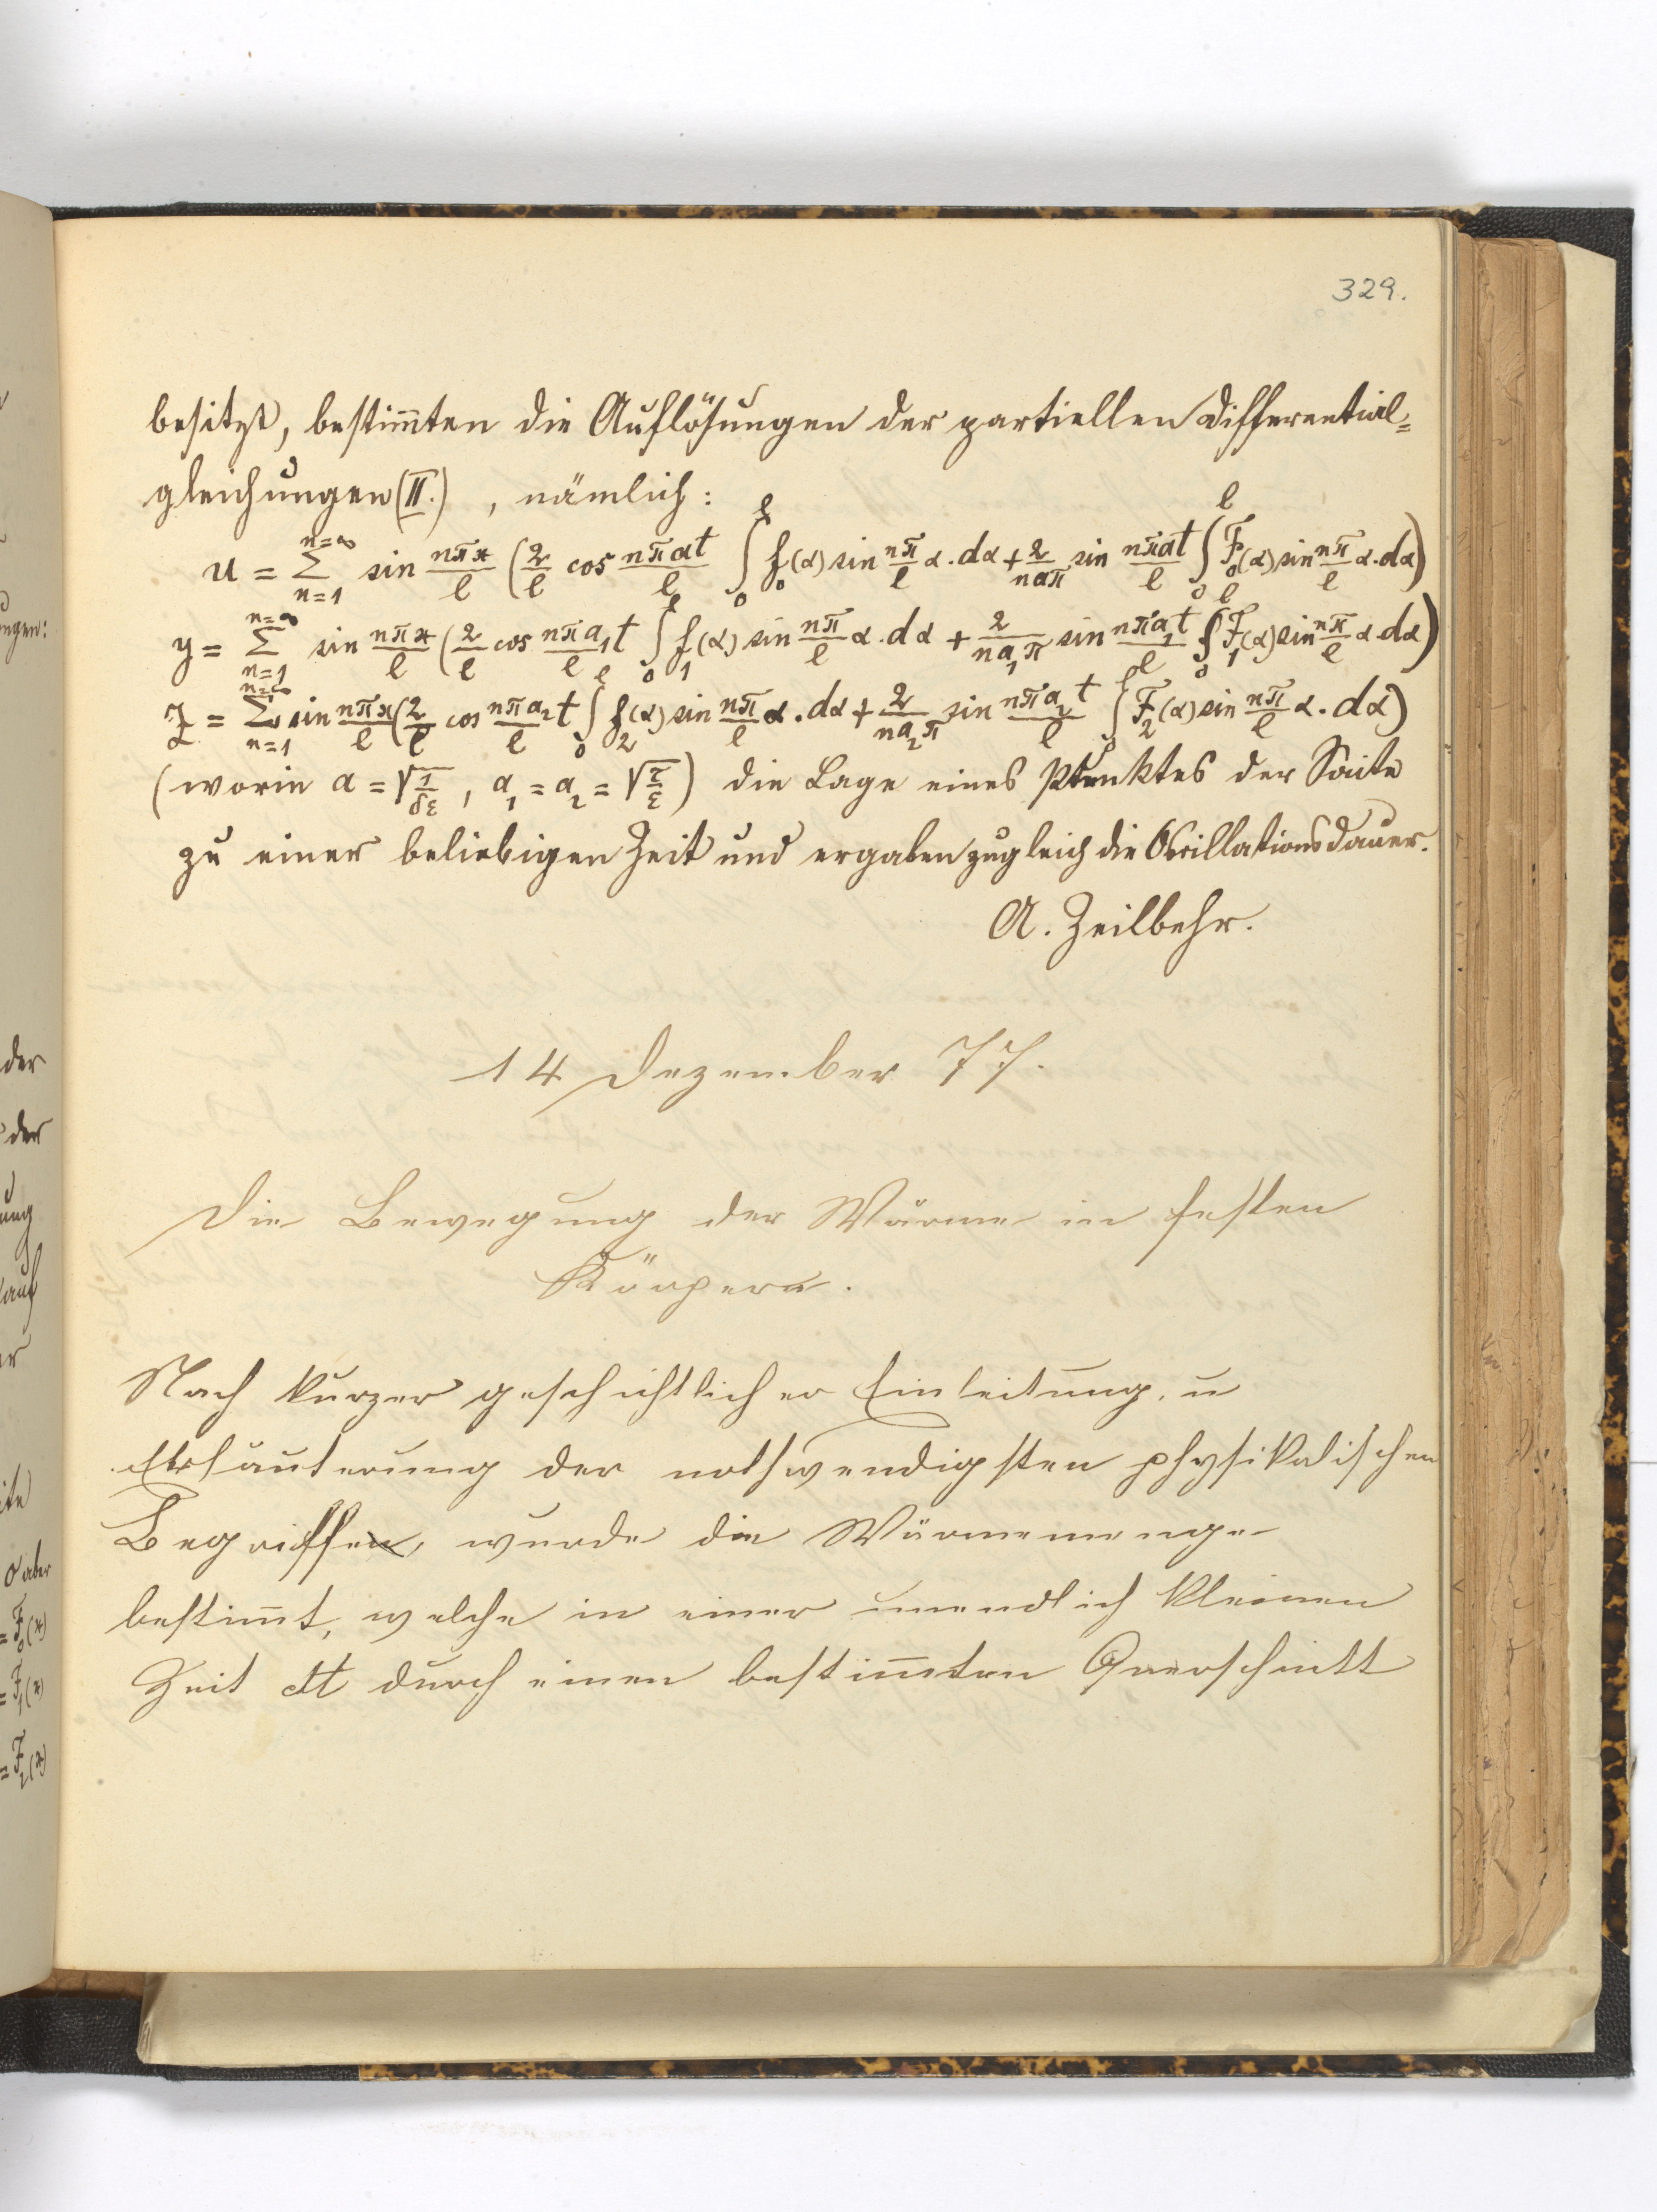 329.
besitzt, bestim̄ten die Auflösungen der partiellen Differential=
gleichungen (II.) , nämlich:
u = Σ_{n=1}^{n=∞} sin nπx/l (2/l cos nπat/l ∫_0^l f_0(α) sin nπ/l α.dα + 2/naπ sin nπat/l ∫_0^l F_0(α) sin nπ/l α.dα)
y = Σ_{n=1}^{n=∞} sin nπx/l (2/l cos nπa_1t/l ∫_0^l f_1(α) sin nπ/l α.dα + 2/na_1π sin nπa_1t/l ∫_0^l F_1(α) sin nπ/l α.dα)
z = Σ_{n=1}^{n=∞} sin nπx/l (2/l cos nπa_2t/l ∫_0^l f_2(α) sin nπ/l α.dα + 2/na_2π sin nπa_2t/l ∫_0^l F_2(α) sin nπ/l α.dα)
(worin a = √1/δε, a_1 = a_2 = √τ/ε) die Lage eines Punktes der Saite
zu einer beliebigen Zeit und ergaben zugleich die Oscillationsdauer.
A. Zeilbehr.
14 Dezember 77.
Die Bewegung der Wärme in festen
Körpern.
Nach kurzer geschichtlicher Einleitung. u
Erläuterung der nothwendigsten physikalischen
Begriffe, wurde die Wärmemenge
bestim̄t, welche in einer unendlich kleinen
Zeit dt durch einen bestim̄ten Querschnitt
der
der
ung
auf
ite
aber
= F_0(x)
= F_1(x)
= F_2(x)